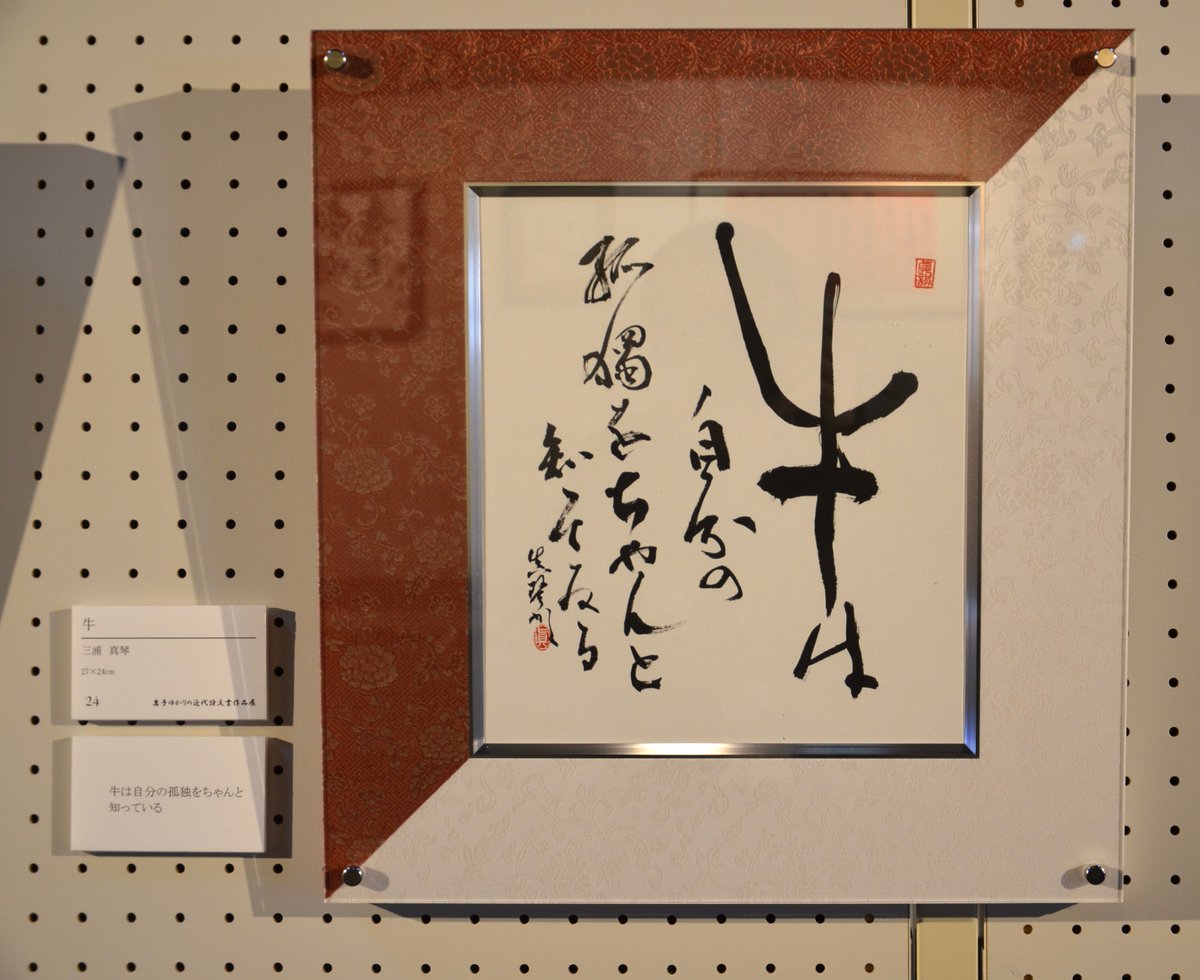 牛は
自分の
孤獨をちゃんと
知ってゐる
真琴
牛
三浦 真琴
27×24cm
24 岩手ゆかりの近代詩文書作品展
牛は自分の孤独をちゃんと
知っている